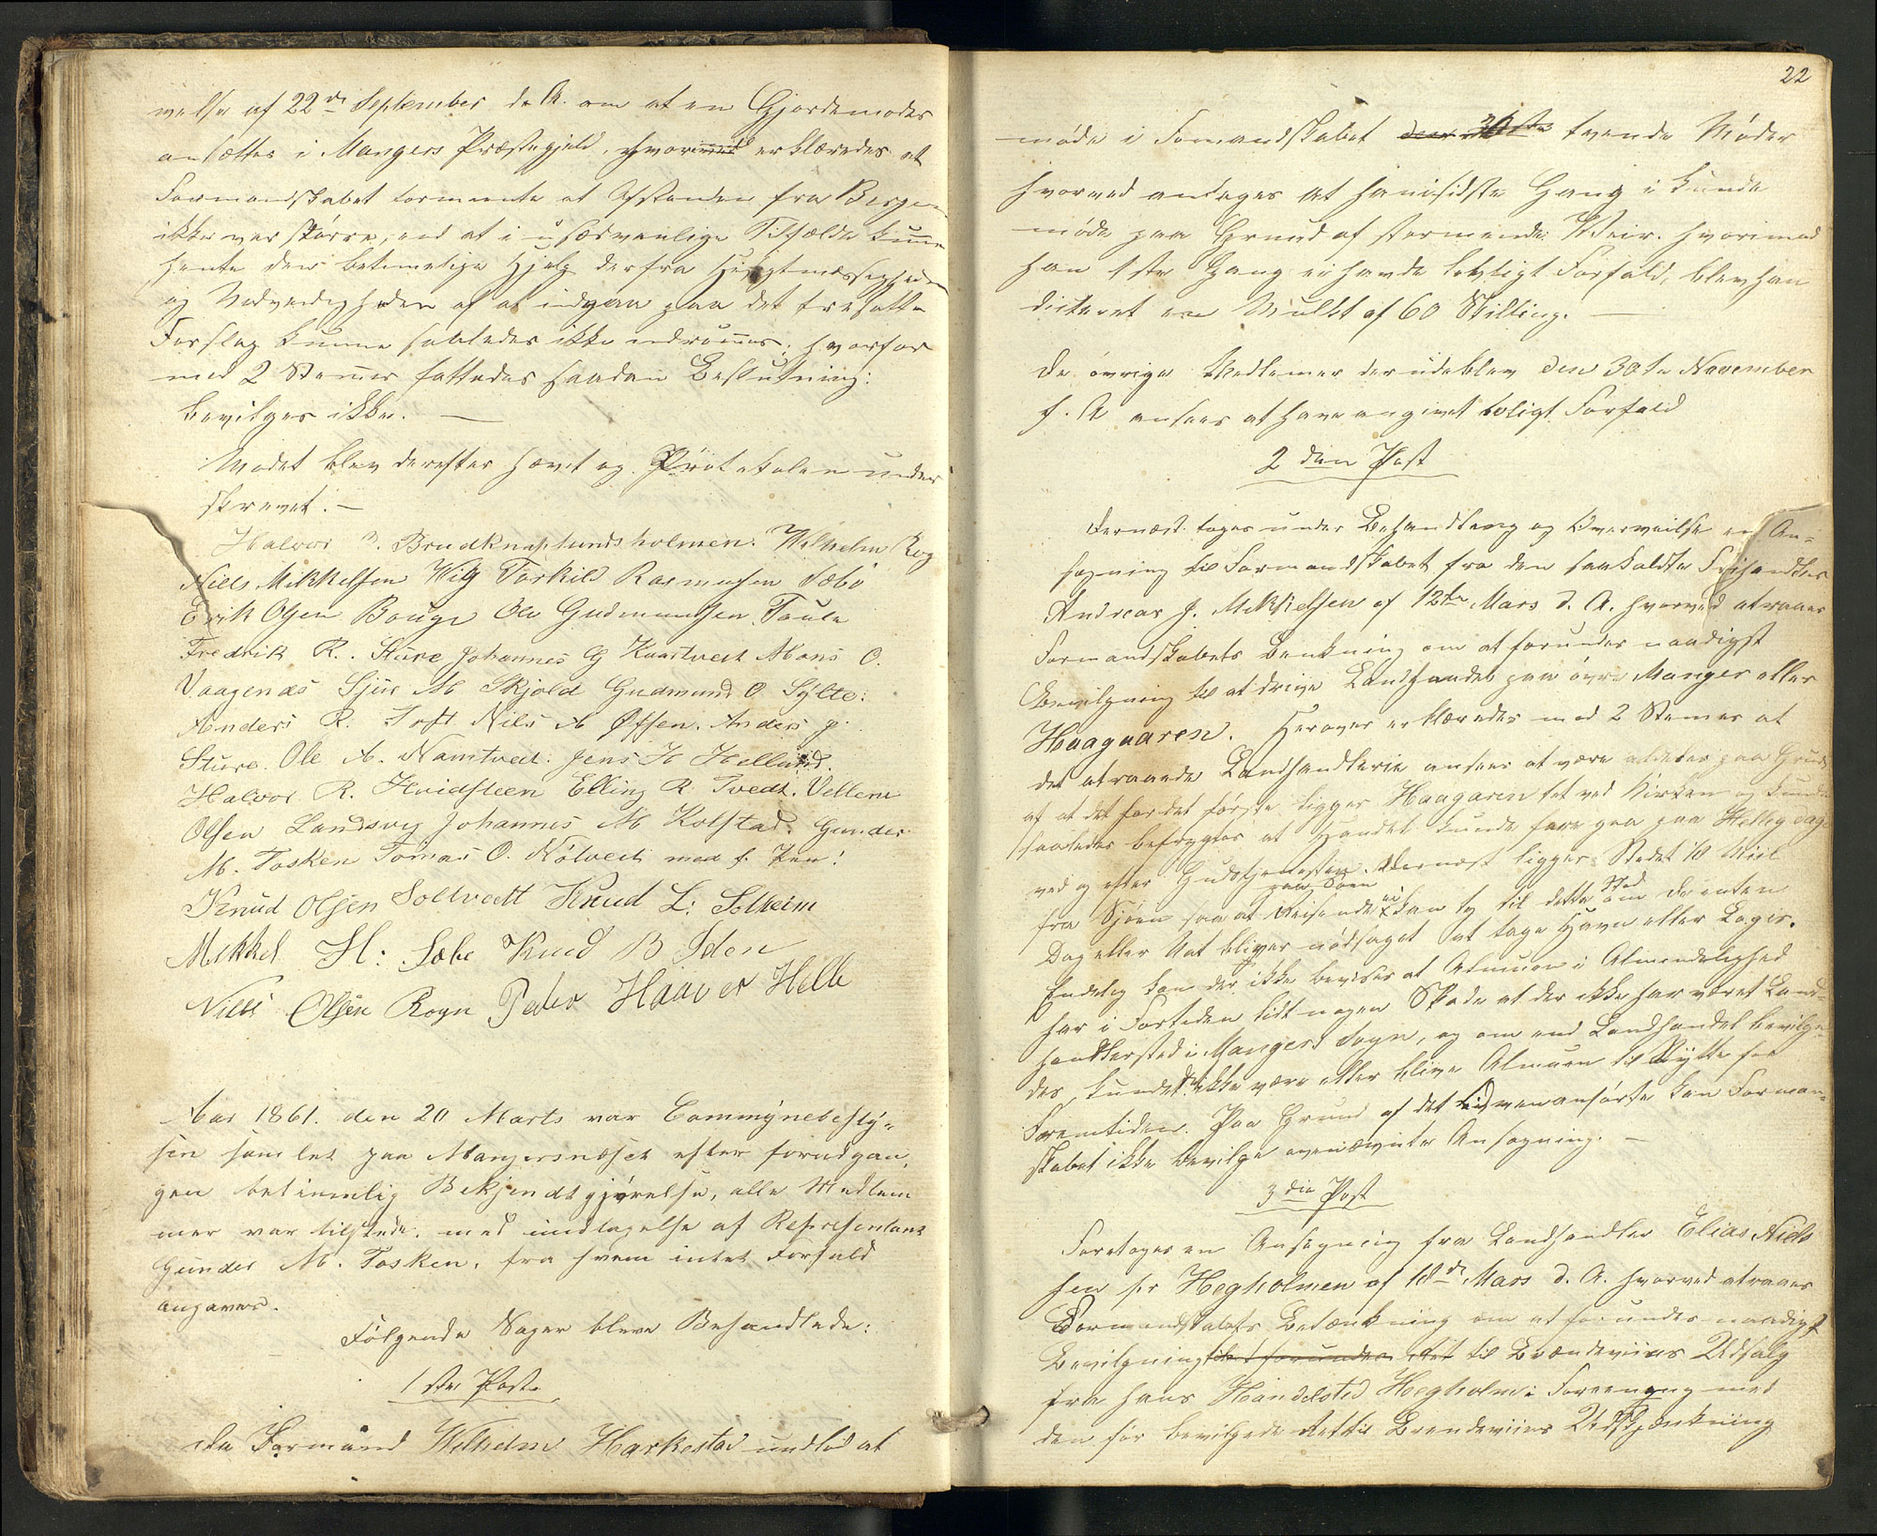 velse af 22de September d. A. om at en Gjordemoder
ansættes i Mangers Præstegjeld, hvorved erklæredes at
Formandskabet formeente at Afstanden fra Bergen
ikke var større, end at i usædvanlige Tilfælde kunne
hente den betimelige Hjelp derfra Hensigtmæssigheden
og Nødvendigheden af at indgaa paa det fremsatte
Forslag kunne saaledes ikke indrømmes; hvorfor
med 2 Stemmer fattedes saadan Beslutning:
bevilges ikke. —
Mødet blev derefter hævet og Protokolen under
skrevet. —
Halvor B. Brudknaplundsholmen. Wilhelm Rog
Niels Mikkelsen Wiig Torkild Rasmusen Sæbö
Erik Olsen Bouge Ole Gudmundsen Toule
Fredrik R. Sture Johannes G Kvastvedt Mons O.
Vaagenæs Sjur M Skjold Gudmund O. Sylte.
Anders R. Toft Nils A Øksen. Anders J.
Sture. Ole A. Namtvedt. Jens H Helland.
Halvor R. Hvidsteen Elling R Tvedt. Vellem
Olsen Landsvig Johannes M Kolstad. Gunder
M. Tosken Tomas O. Nölvedt med f. Pen!
Knud Olsen Soltvedt Knud L: Solheim
Mekkel H: Sæbe Knud B Iden
Niels Olsen Rogn Peder Haaver Helle
Aar 1861. den 20 Marts var Commynebesty-
sen samlet paa Mangersnæset efter foregaaen
gen betimelig Bekjendtgjørelse, alle Medlem
mer var tilstede, med undtagelse af Representant
Gunder M. Tosken, fra hvem intet Forfald
angaves.
Følgende Sager bleve Behandlede:
1ste Post.
Da Formand Wilhelm Harkestad undlod at
22
møde i Formandskabet den 30te tvende Møder
hvorved antages at han sidste Gang i kunde
møde paa Grund af stormende Veir. hvorimod
han 1ste Gang ei havde lovligt Forfald, blev han
dicteret en Mulkt af 60 Skilling. —
De øvrige Medlemer der udeblev den 30te November
f. A ansees at have angivet lovligt Forfald
2den Post
Dernæst toges under Behandling og Overveielse en An-
søgning til Formandskabet fra den saakaldte Frihandler
Andreas J. Mikkelsen af 12te Mars d. A. hvorved atraaes
Formandskabets Tænkning om at forundes naadigst
Bevilgning til at drive Landhandel paa øvre Manger eller
Haagaaren. Herover erklæredes med 2 Stemer at
det atraaede Landhandlerie ansees at være aldeles paa Grund
af at det for det første ligger Haagaren tet ved Kirken og kunde
saaledes befrygtes at Handel kunde fore gaa paa Hellig dage
ved og efter Gudstjenesten. Dernæst ligger Stedet 1/8 Miil
fra Sjøen saa at Reisende paa Søen ei kan ty til dette Sted om de enten
Dag eller Nat bliver nødsaget at tage Havn eller Logis.
Endelig kan der ikke bevises at Almuen i Almindelighed
har i Fortiden lidt nogen Skade at der ikke har været Land-
handlersted i Mangers Sogn, og om end Landhandel bevilge-
des, kunde det ikke være eller blive Almuen til Nytte for
Fremtiden. Paa Grund af det ovenanførte kan Forman-
skabet ikke bevilge ovennævnte Ansøgning. —
3die Post
Foretoges en Ansøgning fra Landhandler Elias Niels
sen fr Hegholmen af 18de Mars d. A. hvorved atraaes
Formandskabets Betænkning om at forundes naadigst
Bevilgning til Brændeviins Udsalg
fra hans Handelsted Hegholm i Forening med
den før bevilgede Ret til Brendeviins Udskjænkning